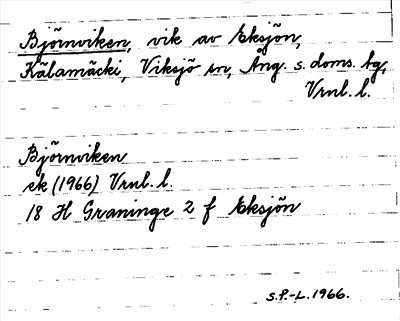 Björnviken, vik av Eksjön,
Kälamäcki, Viksjö sn, Ång. s. doms. tg,
Vrnl. l.
Björnviken
ek (1966) Vrnl. l.
18 H Graninge 2 f Eksjön
S.P.-L. 1966.